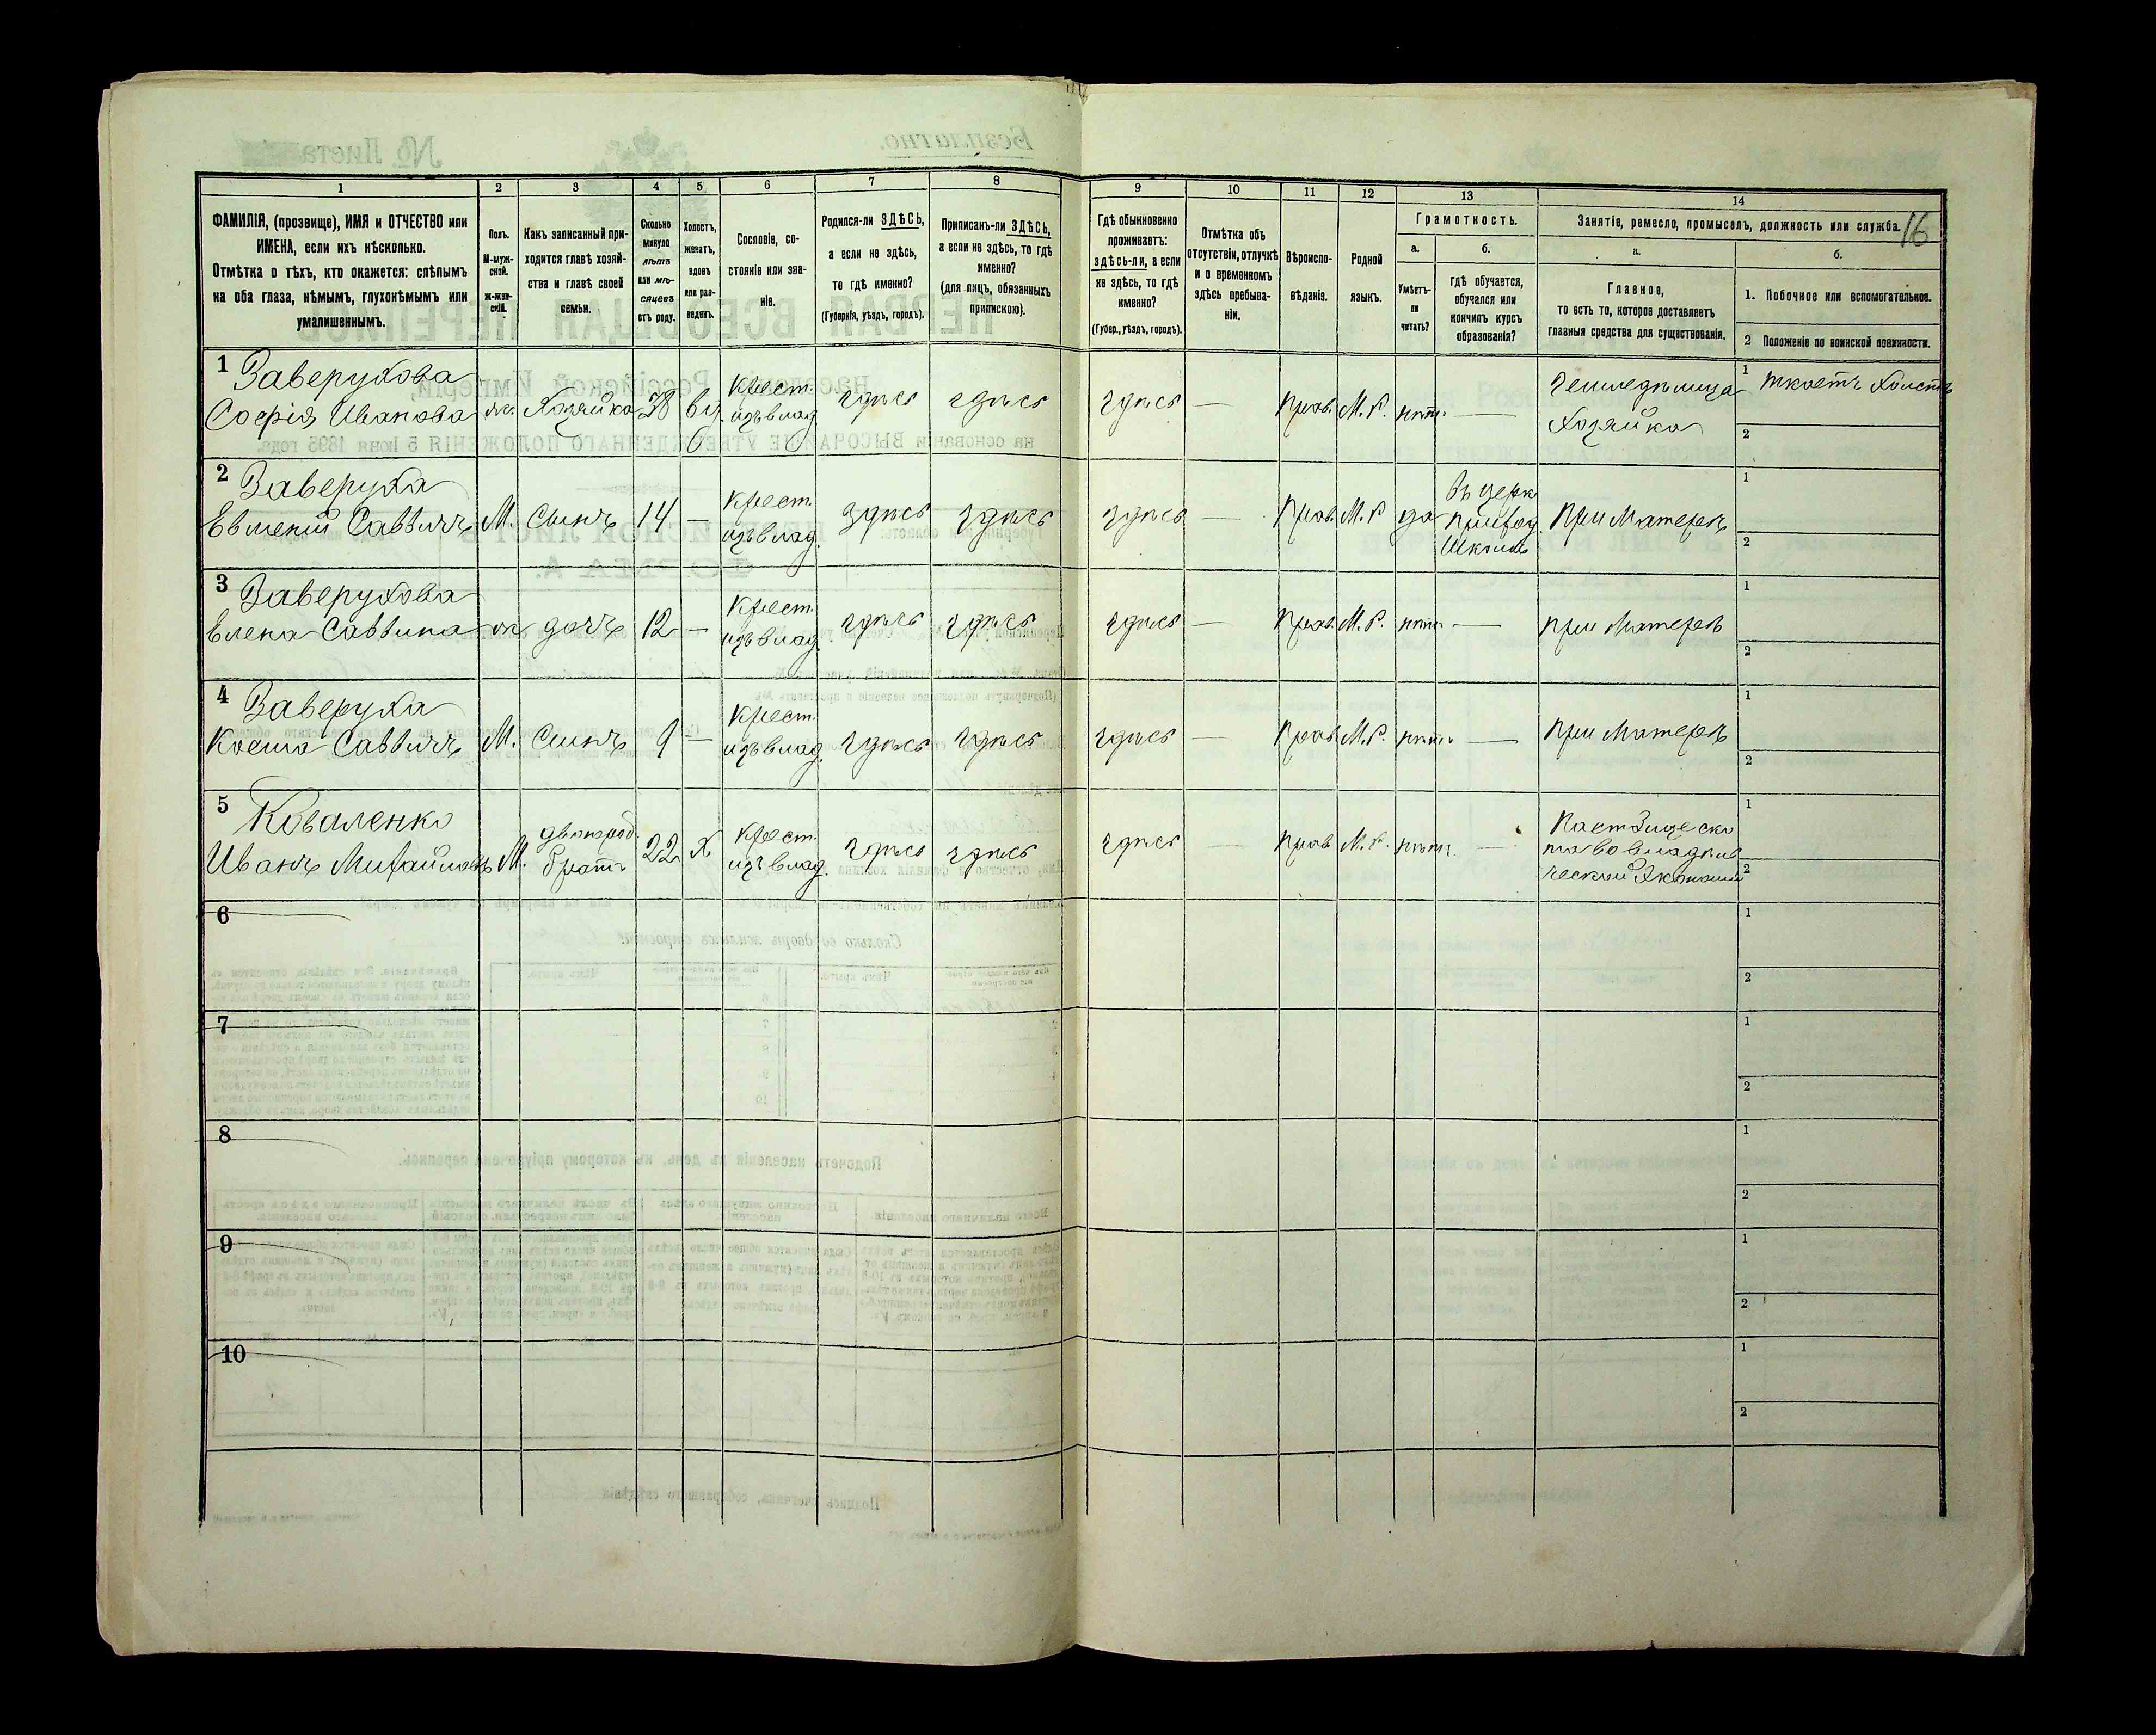 1 2 3 4 5 6 7 8 9 10 11 12 13 14
16
ФАМИЛІЯ, (прозвище), ИМЯ и ОТЧЕСТВО или
ИМЕНА, если ихъ нѣсколько.
Отмѣтка о тѣхъ, кто окажется: слѣпымъ
на оба глаза, нѣмымъ, глухонѣмымъ или
умалишеннымъ.
Полъ.
М-муж-
ской.
ж-жен-
скій.
Какъ записанный при-
ходится главѣ хозяй-
ства и главѣ своей
семьи.
Сколько
минуло
лѣтъ
или мѣ-
сяцевъ
отъ роду.
Холостъ,
женатъ,
вдовъ
или раз-
веденъ.
Сословіе, со-
стояніе или зва-
ніе.
Родился-ли ЗДѢСЬ,
а если не здѣсь,
то гдѣ именно?
(Губернія, уѣздъ, городъ).
Приписанъ-ли ЗДѢСЬ,
а если не здѣсь, то гдѣ
именно?
(для лицъ, обязанныхъ
припискою).
Гдѣ обыкновенно
проживаетъ:
здѣсь-ли, а если
не здѣсь, то гдѣ
именно?
(Губер., уѣздъ, городъ).
Отмѣтка объ
отсутствіи, отлучкѣ
и о временномъ
здѣсь пребыва-
ніи.
Вѣроиспо-
вѣданіе.
Родной
языкъ.
Грамотность.
а.
Умѣетъ-
ли
читать?
б.
гдѣ обучается,
обучался или
кончилъ курсъ
образованія?
Занятіе, ремесло, промыселъ, должность или служба.
а.
Главное,
то есть то, которое доставляетъ
главныя средства для существованія.
б.
1. Побочное или вспомогательное.
2 Положеніе по воинской повинности.
1 Заверухова
Софія Иванова ж. Хозяйка 38 вд. Крест. изъ влад. здѣсь здѣсь здѣсь — Прав. М. Р. нѣтъ — Хозяйка
1 ткетъ холстъ
2
2 Заверуха
Евменій Саввичъ М. Сынъ 14 — Крест. изъ влад. здѣсь здѣсь здѣсь — Прав. М. Р да въ церк. приход. школѣ при матерѣ
1
2
3 Заверухова
Елена Саввина ж дочь 12 — Крест. изъ влад. здѣсь здѣсь здѣсь — Прав. М. Р. нѣтъ — при матерѣ
1
2
4 Заверуха
Косма Саввичъ М. Сынъ 9 — Крест. изъ влад. здѣсь здѣсь здѣсь — Прав. М. Р. нѣтъ — при матерѣ
1
2
5 Коваленко
Иванъ Михайловъ М. двоюрод. братъ 22 х Крест. изъ влад. здѣсь здѣсь здѣсь — Прав. М. Р. нѣтъ —
1
2
6
1
2
7
1
2
8
1
2
9
1
2
10
1
2